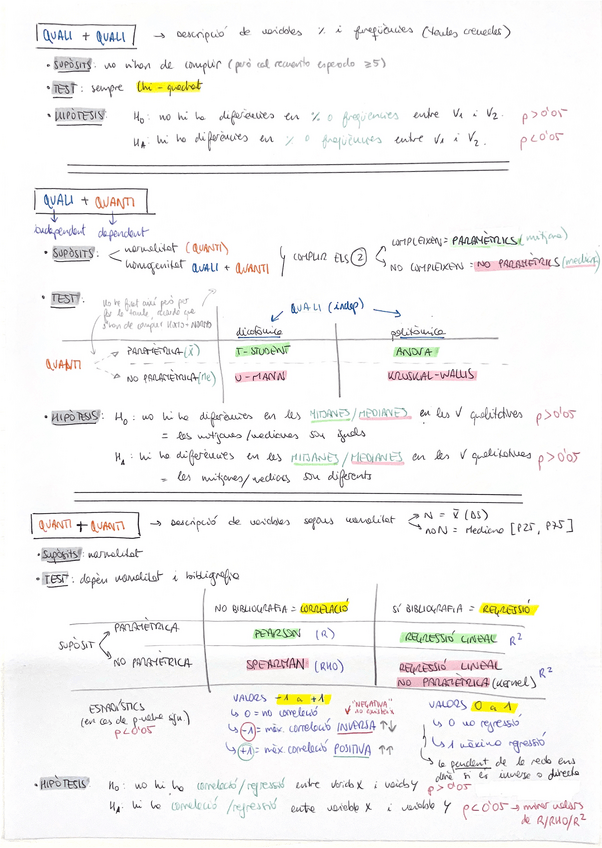 QUALI + QUALI → Descripció de variables % i freqüències (taules creuades)
• SUPÒSITS: no s'han de complir (però cal recuento esperado ≥5)
• TEST: sempre Chi-quadrat
• HIPÒTESIS H0: no hi ha diferències en % o freqüències entre V1 i V2. p>0'05
HA: hi ha diferències en % o freqüències entre V1 i V2. p<0'05
QUALI + QUANTI
independent dependent
• SUPÒSITS: normalitat (QUANTI)
homogeneitat QUALI + QUANTI
COMPLIR ELS 2
COMPLEIXEN = PARAMÈTRICS (mitjana)
NO COMPLEIXEN = NO PARAMÈTRICS (mediana)
• TEST:
QUALI (indep)
dicotòmica politòmica
QUANTI
PARAMÈTRICA (x̄) T-STUDENT ANOVA
NO PARAMÈTRICA (Me) U-MANN KRUSKAL-WALLIS
• HIPÒTESIS: H0: no hi ha diferències en les MITJANES/MEDIANES en les V qualitatives p>0'05
= les mitjanes/medianes són iguals
HA: hi ha diferències en les MITJANES/MEDIANES en les V qualitatives p>0'05
= les mitjanes/medias són diferents
QUANTI + QUANTI → Descripció de variables segons normalitat
N = x̄ (DS)
noN = Mediana [P25, P75]
• SUPÒSITS: normalitat
• TEST: depèn normalitat i bibliografia
NO BIBLIOGRAFIA = CORRELACIÓ SÍ BIBLIOGRAFIA = REGRESSIÓ
SUPÒSIT
PARAMÈTRICA PEARSON (R) REGRESSIÓ LINEAL R²
NO PARAMÈTRICA SPEARMAN (RHO) REGRESSIÓ LINEAL
NO PARAMÈTRICA (Kernel) R²
ESTADÍSTICS
(en cas de p-valor sign.)
p<0'05
VALORS -1 a +1
"NEGATIVA"
↳ 0 = no correlació
↳ -1 = màx. correlació INVERSA ↑↓
↳ +1 = màx. correlació POSITIVA ↑↑
VALORS 0 a 1
↳ 0 no regressió
↳ 1 màxima regressió
↳ la pendent de la recta ens
dirà si és inversa o directa
• HIPÒTESIS H0: no hi ha correlació/regressió entre variable X i variable Y p>0'05
HA: hi ha correlació/regressió entre variable X i variable Y p<0'05 → mirar valors
de R/RHO/R²